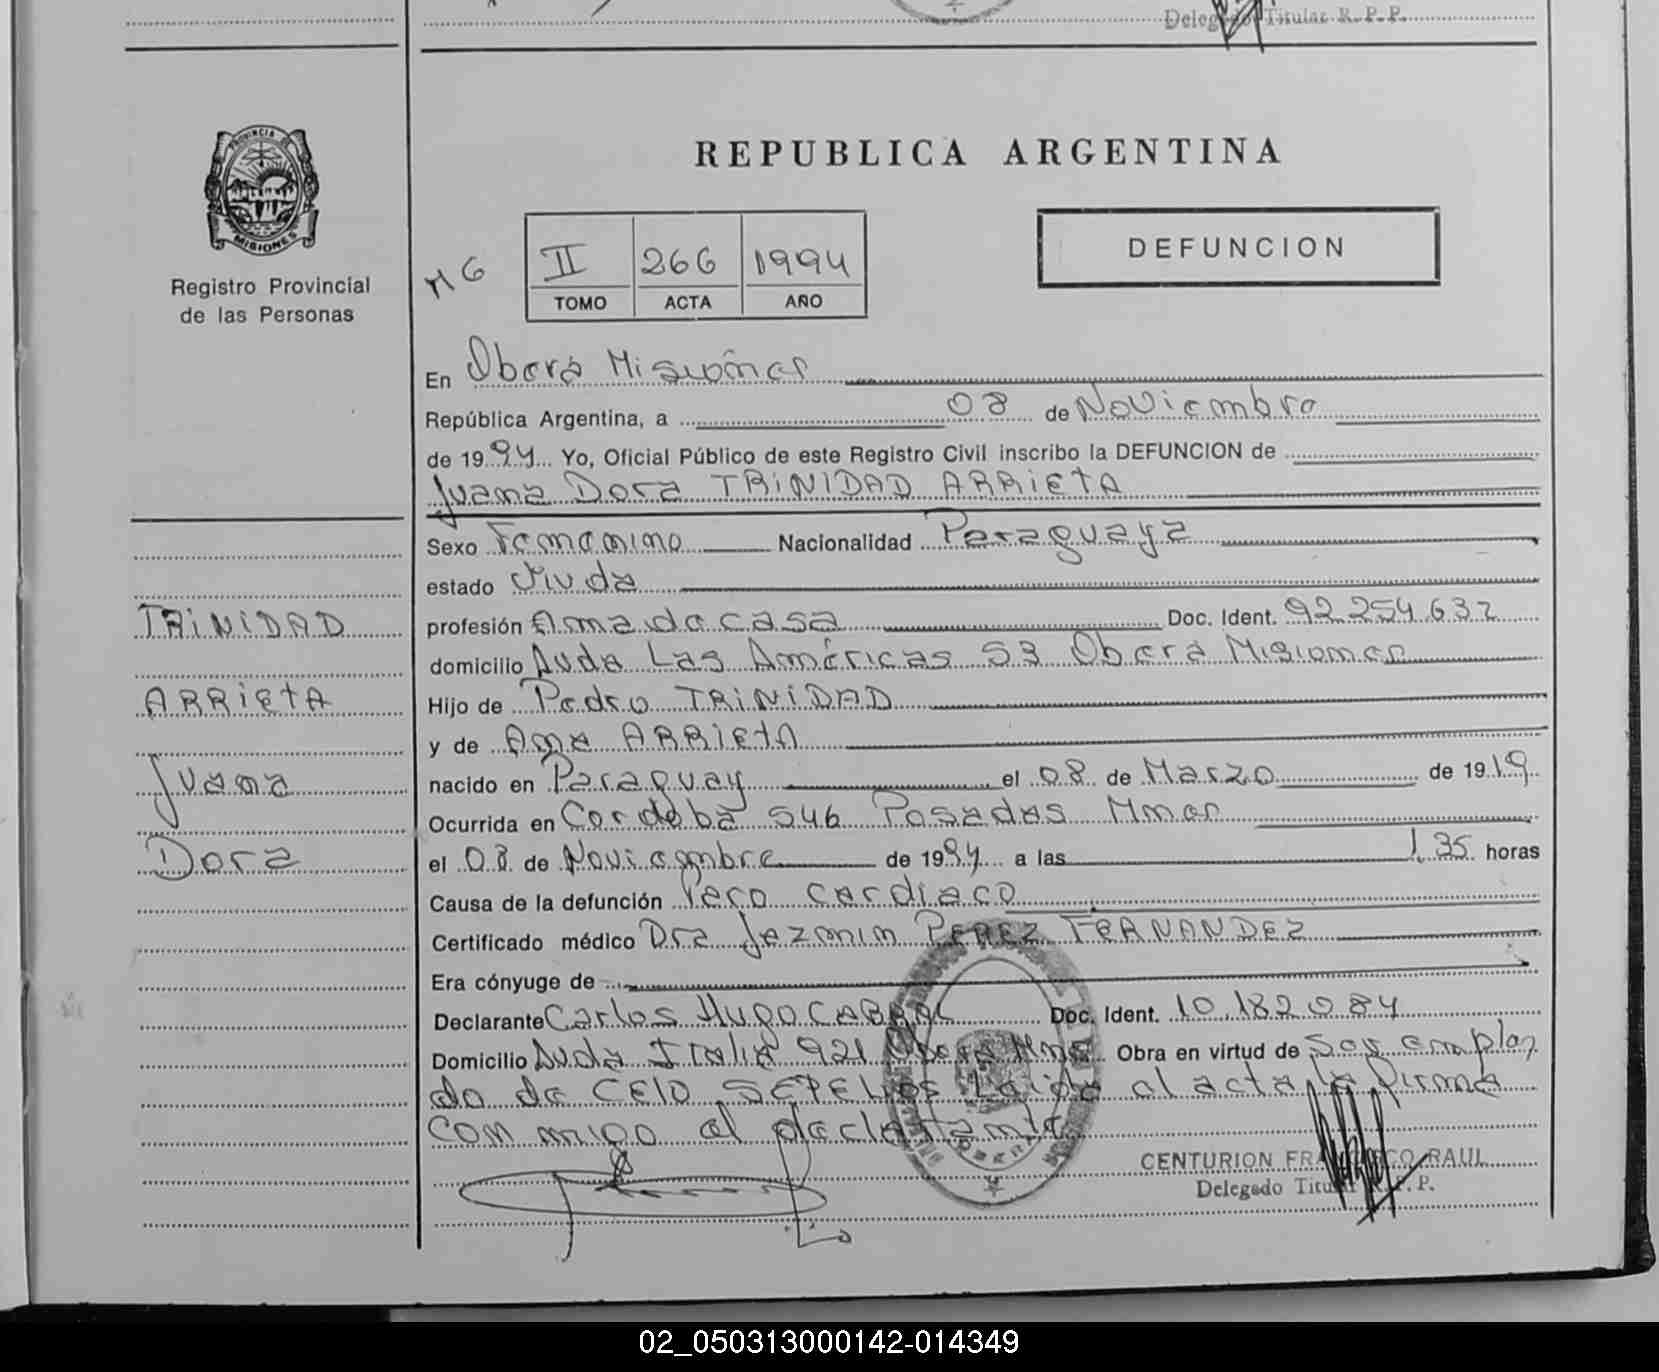 Delegado Titular R.P.P.
PROVINCIA DE
MISIONES
Registro Provincial
de las Personas
REPUBLICA ARGENTINA
MG
II 266 1994
TOMO ACTA AÑO
DEFUNCION
En Oberá Misiones
República Argentina, a 08 de Noviembre
de 1994 Yo, Oficial Público de este Registro Civil inscribo la DEFUNCION de
Juana Dora TRINIDAD ARRIETA
Sexo Femenino Nacionalidad Paraguaya
estado Viuda
profesión Ama de casa Doc. Ident. 92.254.632
domicilio Avda Las Américas 53 Oberá Misiones
Hijo de Pedro TRINIDAD
y de Ana ARRIETA
nacido en Paraguay el 08 de Marzo de 1919
Ocurrida en Cordoba 546 Posadas Mnes
el 08 de Noviembre de 1994 a las 1,35 horas
Causa de la defunción Paro cardiaco
Certificado médico Dra Jazmin PEREZ FERNANDEZ
Era cónyuge de
Declarante Carlos Hugo CABRAL Doc. Ident. 10.182.084
Domicilio Avda Italia 921 Oberá Mnes Obra en virtud de Ser emplea
do de CELO SEPELIOS Leída el acta la firma
con migo el declarante
CENTURION FRANCISCO RAUL
Delegado Titular R.P.P.
TRINIDAD
ARRIETA
Juana
Dora
02_050313000142-014349